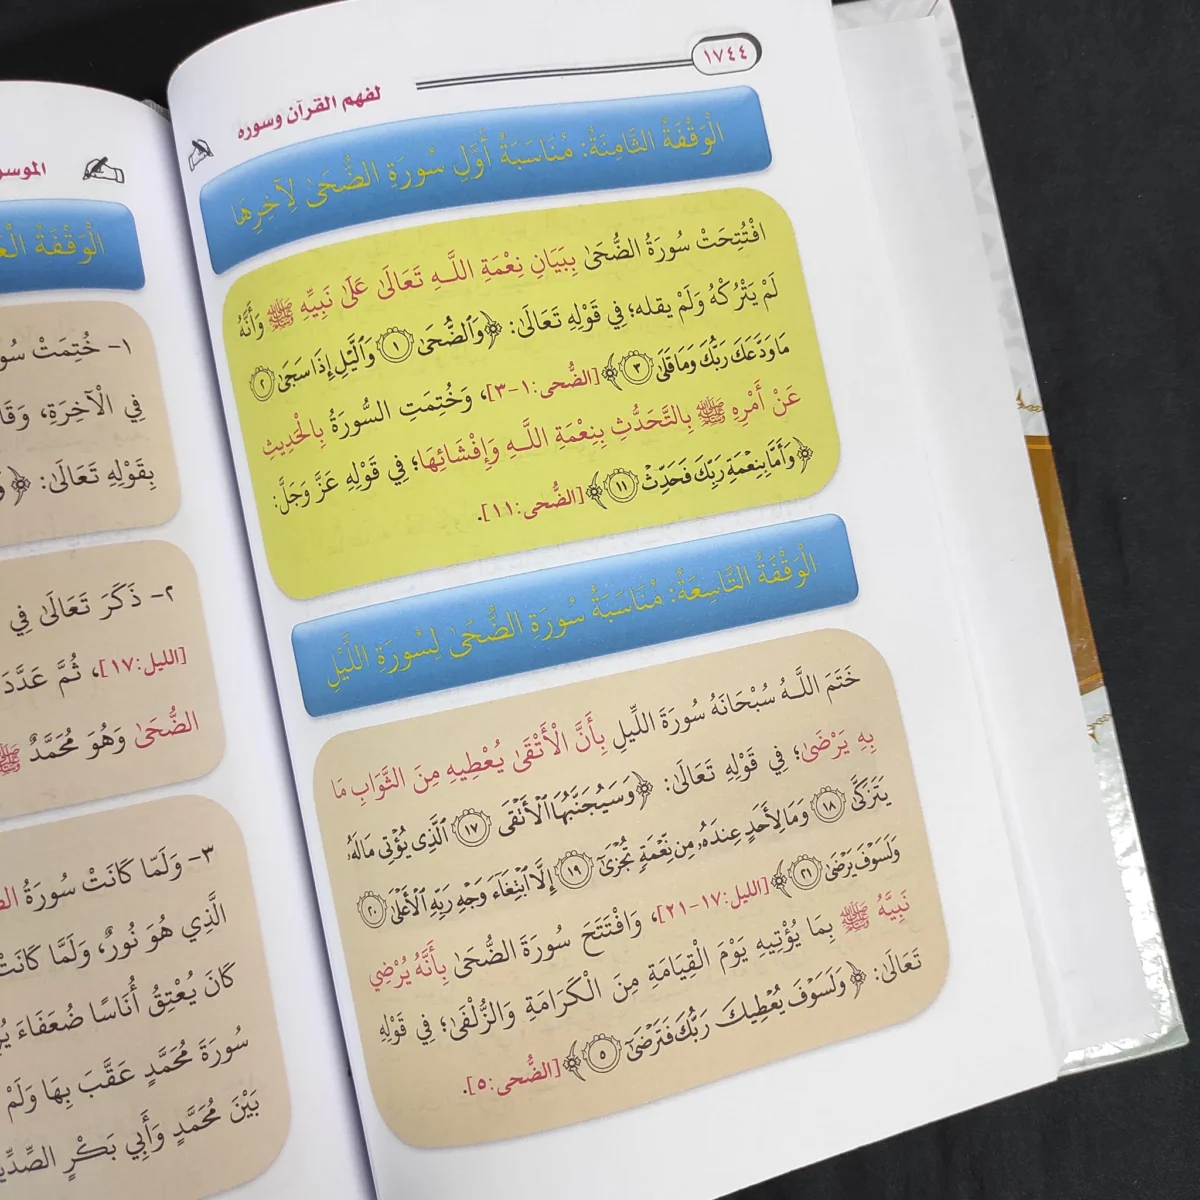 ١٧٤٤
لفهم القرآن وسوره
الْوَقْفَةُ الثَّامِنَةُ: مُنَاسَبَةُ أَوَّلِ سُورَةِ الضُّحَىٰ لِآخِرِهَا
افْتُتِحَتْ سُورَةُ الضُّحَىٰ بِبَيَانِ نِعْمَةِ اللَّهِ تَعَالَىٰ عَلَىٰ نَبِيِّهِ ﷺ وَأَنَّهُ
لَمْ يَتْرُكْهُ وَلَمْ يقله؛ فِي قَوْلِهِ تَعَالَىٰ: ﴿وَٱلضُّحَىٰ ١ وَٱلَّيْلِ إِذَا سَجَىٰ ٢
مَا وَدَّعَكَ رَبُّكَ وَمَا قَلَىٰ ٣﴾ [الضُّحى:١-٣]، وَخُتِمَتِ السُّورَةُ بِالْحَدِيثِ
عَنْ أَمْرِهِ ﷺ بِالتَّحَدُّثِ بِنِعْمَةِ اللَّهِ وَإِفْشَائِهَا؛ فِي قَوْلِهِ عَزَّ وَجَلَّ:
﴿وَأَمَّا بِنِعْمَةِ رَبِّكَ فَحَدِّثْ ١١﴾ [الضُّحى:١١].
الْوَقْفَةُ التَّاسِعَةُ: مُنَاسَبَةُ سُورَةِ الضُّحَىٰ لِسُورَةِ اللَّيْلِ
خَتَمَ اللَّهُ سُبْحَانَهُ سُورَةَ اللَّيلِ بِأَنَّ الْأَتْقَىٰ يُعْطِيهِ مِنَ الثَّوَابِ مَا
بِهِ يَرْضَىٰ؛ فِي قَوْلِهِ تَعَالَىٰ: ﴿وَسَيُجَنَّبُهَا ٱلْأَتْقَى ١٧ ٱلَّذِى يُؤْتِى مَالَهُۥ
يَتَزَكَّىٰ ١٨ وَمَا لِأَحَدٍ عِندَهُۥ مِن نِّعْمَةٍ تُجْزَىٰٓ ١٩ إِلَّا ٱبْتِغَآءَ وَجْهِ رَبِّهِ ٱلْأَعْلَىٰ ٢٠
وَلَسَوْفَ يَرْضَىٰ ٢١﴾ [الليل:١٧-٢١]، وَافْتَتَحَ سُورَةَ الضُّحَىٰ بِأَنَّهُ يُرْضِي
نَبِيَّهُ ﷺ بِمَا يُؤْتِيهِ يَوْمَ الْقِيَامَةِ مِنَ الْكَرَامَةِ وَالزُّلْفَىٰ؛ فِي قَوْلِهِ
تَعَالَىٰ: ﴿وَلَسَوْفَ يُعْطِيكَ رَبُّكَ فَتَرْضَىٰٓ ٥﴾ [الضُّحى:٥].
الْوَقْفَةُ
١- خُتِمَتْ
فِي الْآخِرَةِ،
بِقَوْلِهِ تَعَالَىٰ:
٢- ذَكَرَ تَعَالَىٰ فِي
[الليل:١٧]، ثُمَّ عَدَّدَ
الضُّحَىٰ وَهُوَ مُحَمَّدٌ ﷺ
٣- وَلَمَّا كَانَتْ سُورَةُ
الَّذِي هُوَ نُورٌ، وَلَمَّا كَانَتْ
كَانَ يُعْتِقُ أُنَاسًا ضُعَفَاءَ
سُورَةَ مُحَمَّدٍ عَقَّبَ بِهَا وَلَمْ
بَيْنَ مُحَمَّدٍ وَأَبِي بَكْرٍ